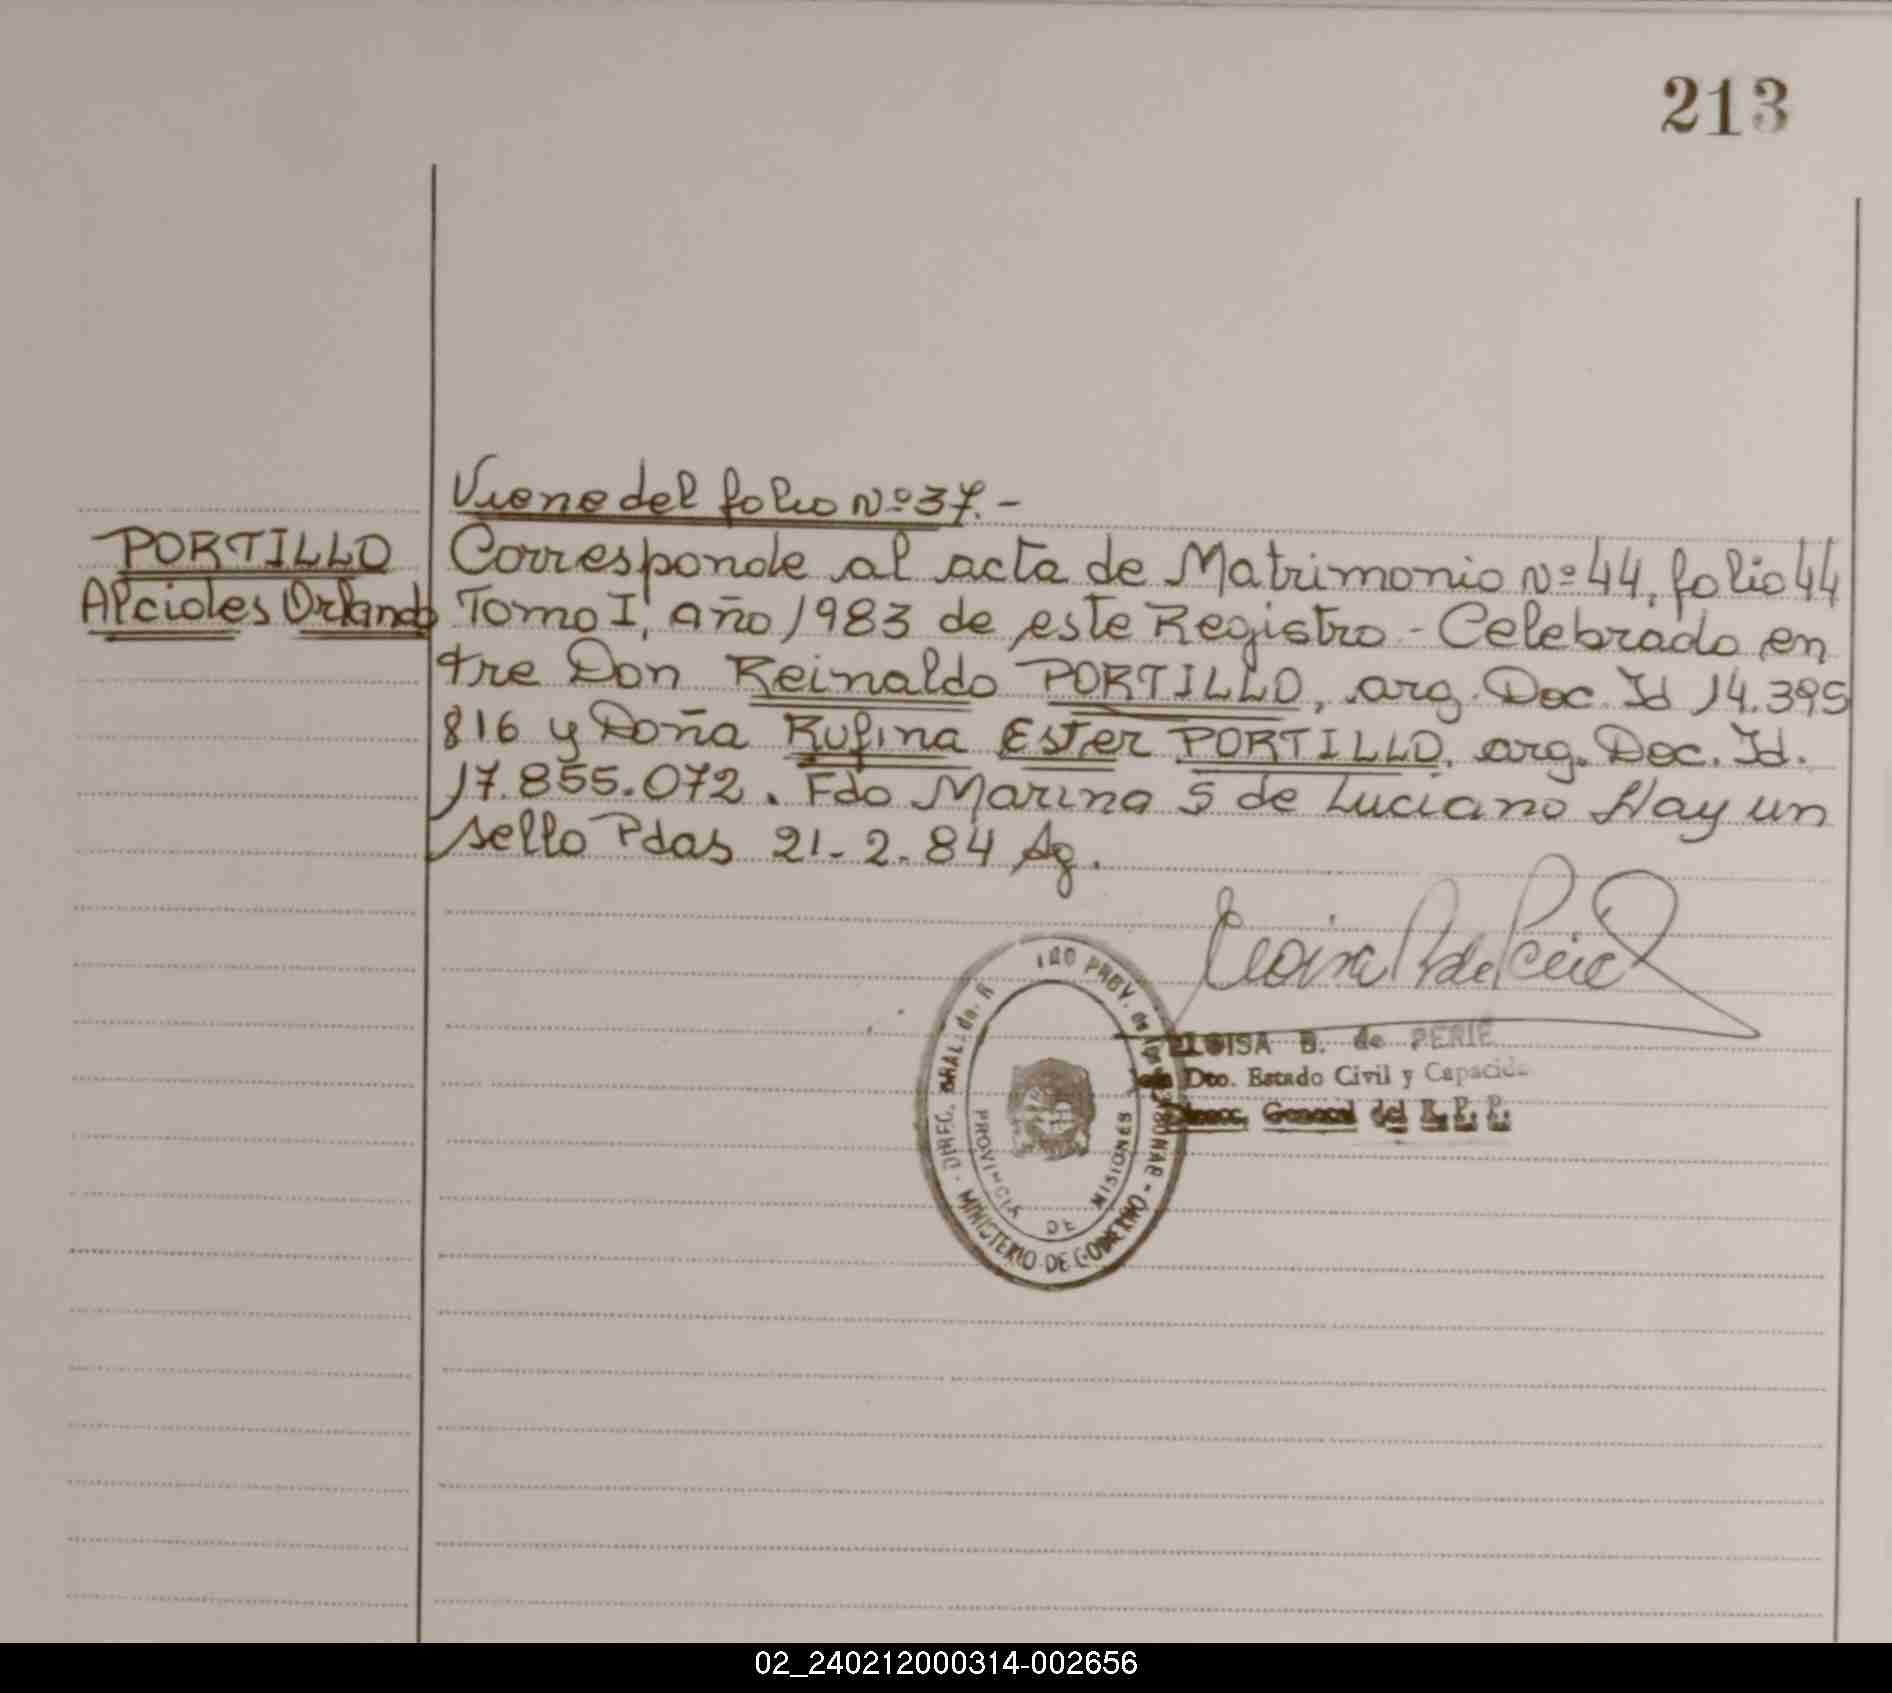 213
Viene del folio Nº 37.-
PORTILLO
Alcides Orlando
Corresponde al acta de Matrimonio Nº 44, folio 44
Tomo I, año 1983 de este Registro - Celebrado en
tre Don Reinaldo PORTILLO, arg. Doc. Id 14.395
816 y Doña Rufina Ester PORTILLO, arg. Doc. Id.
17.855.072. Fdo Marina S de Luciano Hay un
sello Pdas 21-2-84 Ag.
ELOISA B. de PERIE
Dto. Estado Civil y Capacida
Direcc. General del R. P. P.
DIREC. GRAL. de R
PROV. de las
MINISTERIO DE GOBIERNO
PROVINCIA DE MISIONES
02_240212000314-002656